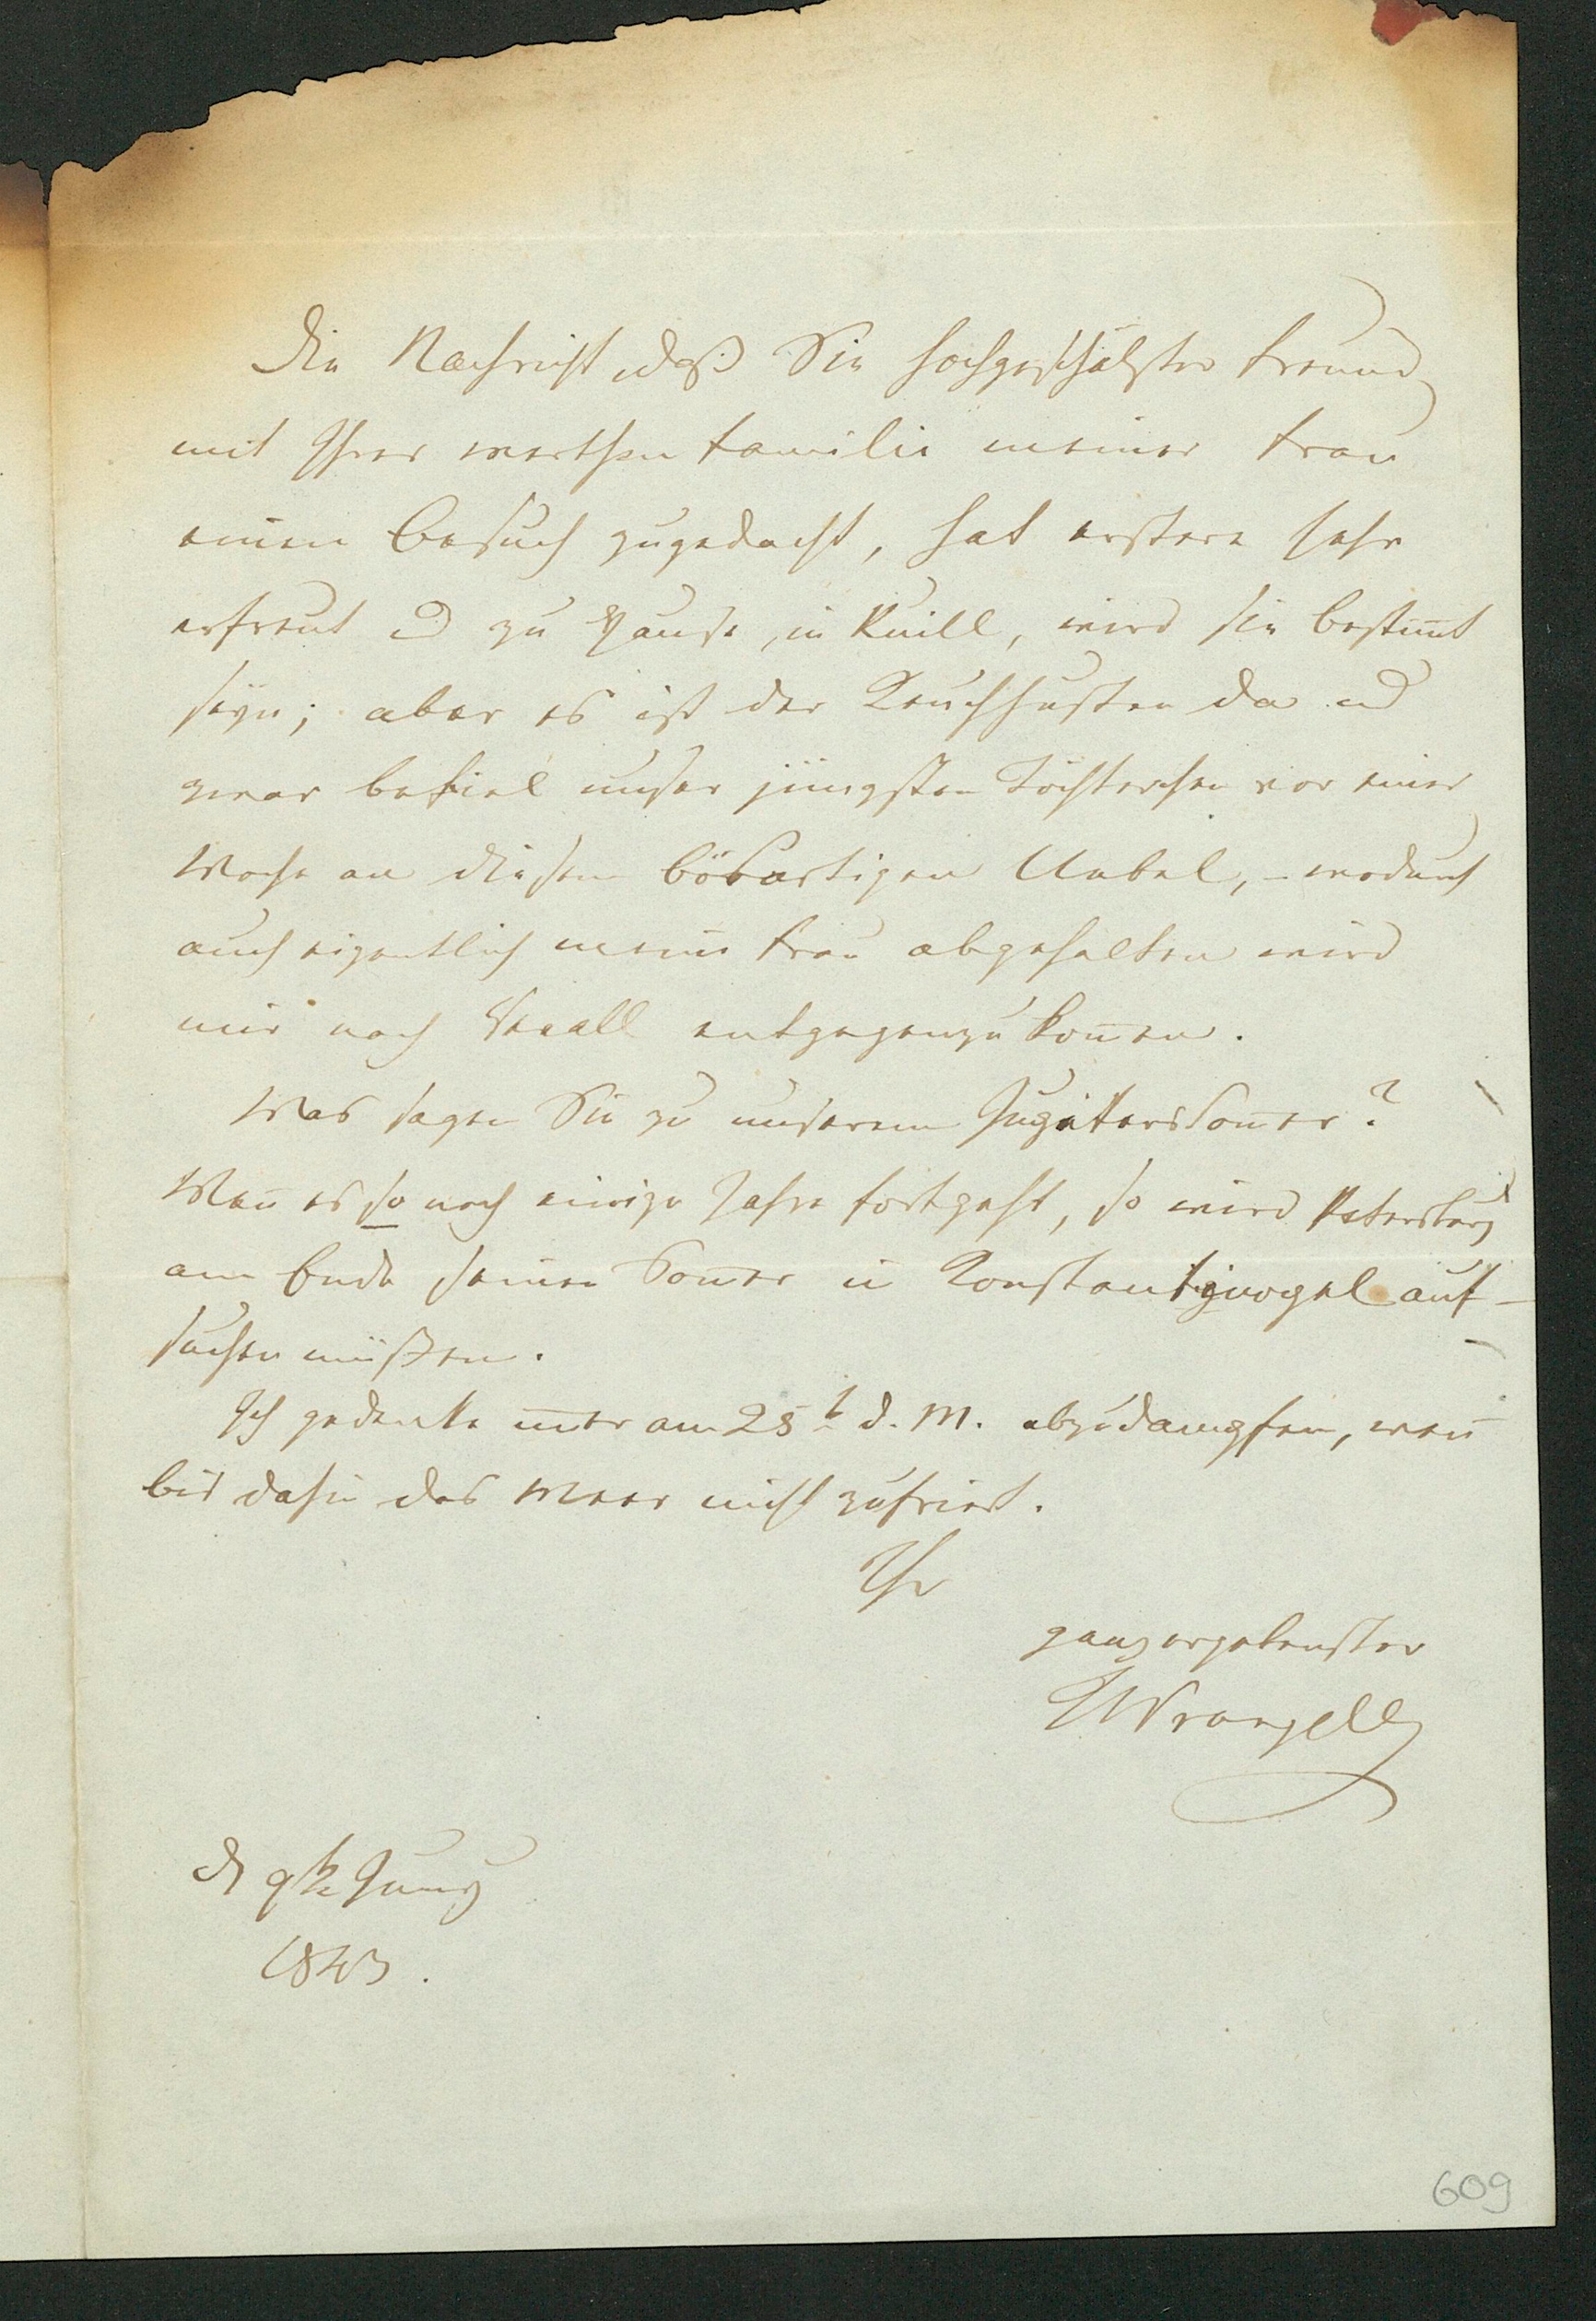 Die Nachricht, daß Sie hochgeschätzter Freund
mit Ihrer werthen Familie meiner Frau
einen Besuch zugedacht, hat erstere sehr
erfreut und zu Hause, in Ruill, wird sie bestim̅t
seyn; aber es ist der Keuchhusten da und
zwar befiel unser jüngstes Töchterchen vor einer
Woche an diesem bösartigen Uebel, – wodurch
auch eigentlich meine Frau abgehalten wird
mir nach Reval entgegenzukom̅en.
Was sagen Sie zu unserem Som̅er?
Wen̅ es so noch einige Jahre fortgeht, so wird Petersburg
am Ende seinen Som̅er in Konstantinopel auf-
suchen müßen.
Ich gedenke am 25t d. M. abzudampfen, wen̅
bis dahin das Meer nicht zufriert.
Ihr
ganz ergebenster
FWrangell
d 9ten Juny
1843.
609